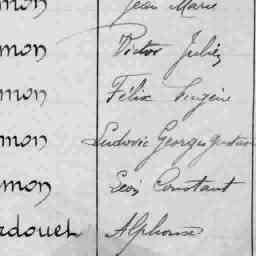 mon Jean Marie
mon Victor Julien
mon Félix Eugène
mon Ludovic Georges Gustave
mon Léon Constant
rdouet Alphonse